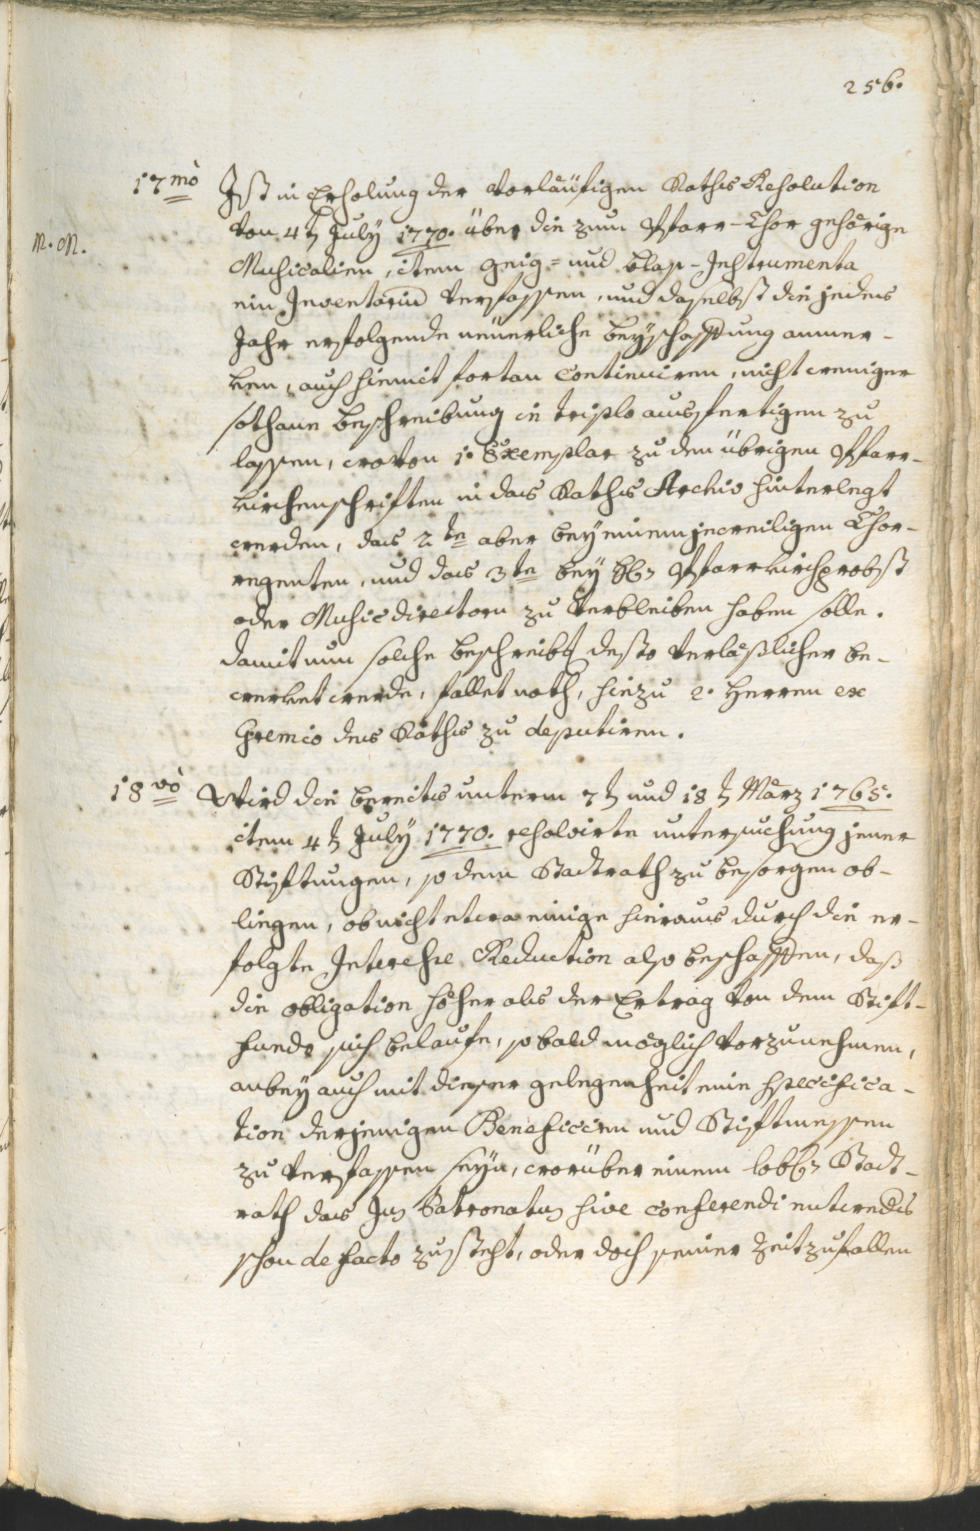 256.
17mò Ist in Erholung der vorläufigen Raths Resolution
von 4t July 1770. über die zum Pfarr-Chor gehörige
N. N.
Musicalien, item geig= und blas-Instrumenta
ein Inventariū verfassen, und daselbst die jedes
Jahr erfolgende neuerliche beyschaffung anmer-
ken, auch hiemit fortan continuiren, nicht weniger
sothane beschreibung in triplo ausfertigen zu
lassen, wovon 1. Exemplar zu den übrigen Pfarr-
kirchenschriften in das Raths Archiv hinterlegt
werden, das 2te aber bey einem jeweiligen Chor-
regenten, und das 3te bey Pfarrkirchprobst
oder Musicdirectorn zu verbleiben haben solle.
damit nun solche beschreibg desto verläßlicher be-
werket werde, fallet noth, hiezu 2. Herren ex
Gremio des Raths zu deputiren.
18vò Wird die bereits unterm 7t und 18t März 1765.
item 4t July 1770. resolvirte untersuchung jener
Stiftungen, so dem Stadtrath zu besorgen ob-
liegen, ob nicht etwa einige hieraus durch die er-
folgte Interesse Reduction also beschaffen, daß
die obligation höher als der Ertrag von dem Stift-
funds sich belaufe, so bald möglich vorzunehmen,
anbey auch mit dieser gelegenheit eine specifica-
tion derjenigen Beneficien und Stiftmessen
zu verfassen seyn, worüber einem lobl Stadt-
rath das Jus Patronatus sive conferendi entweders
schon de facto zusteht, oder doch seiner Zeit zufallen